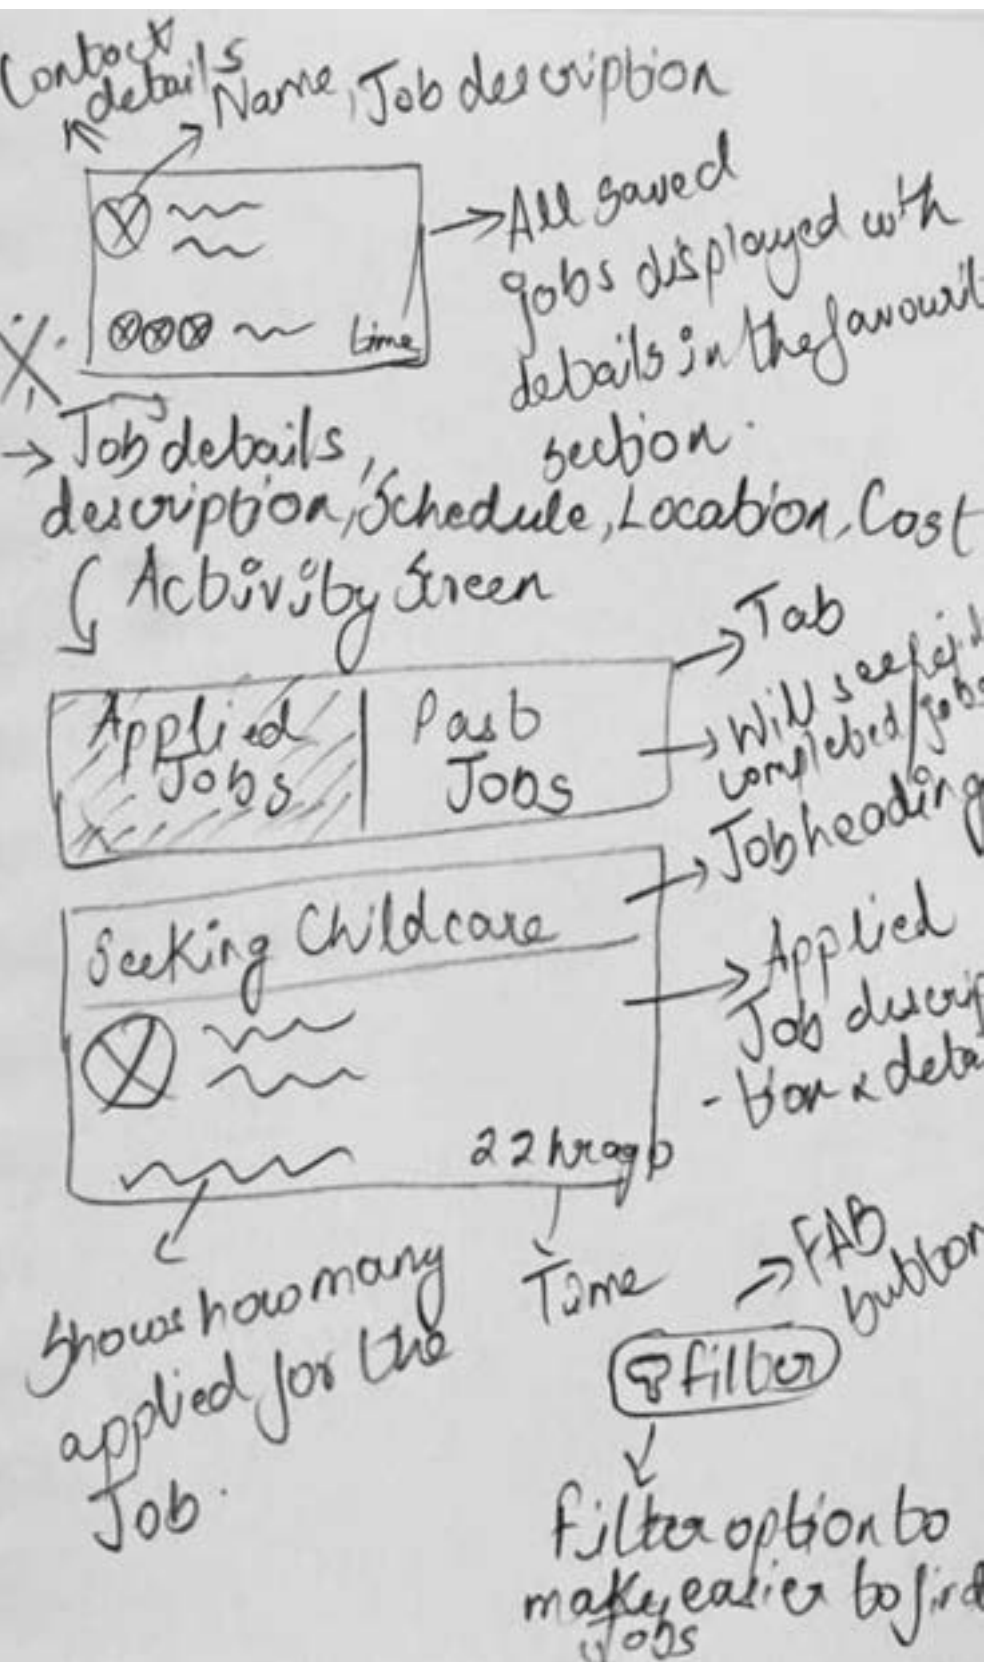 Contact
details
Name, Job description
All saved
jobs displayed with
details in the favourit
section.
time
Job details,
description, Schedule, Location, Cost
Activity Screen
Tab
Applied
Jobs
Past
Jobs
Will see
completed/jobs
Job heading
Seeking Childcare
Applied
Job descrip
-tion & deta
22 hr ago
Time
Shows how many
applied for the
Job.
FAB
button
filter
filter option to
make easier to find
Jobs